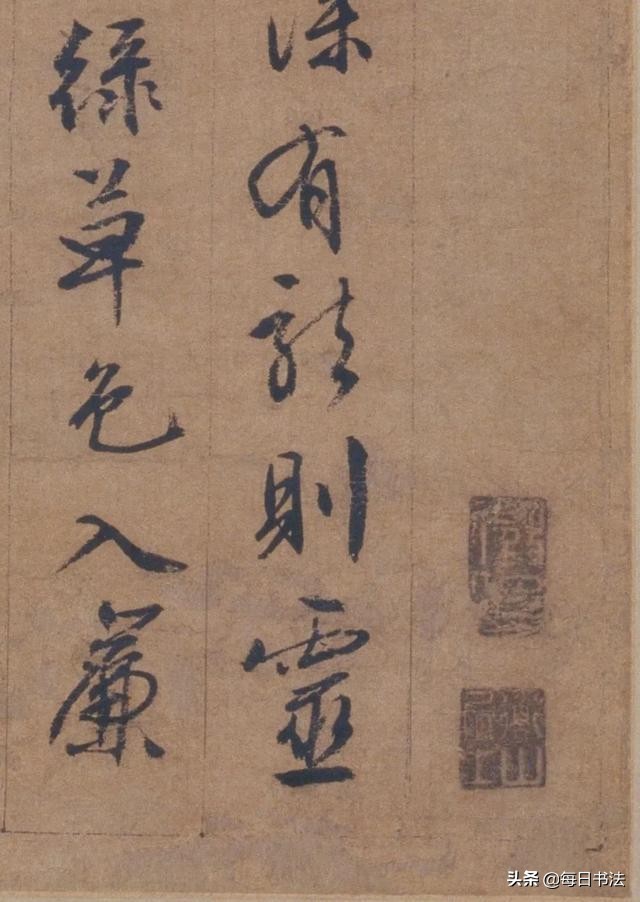 深有龍則靈
綠草色入簾
头条 @每日书法